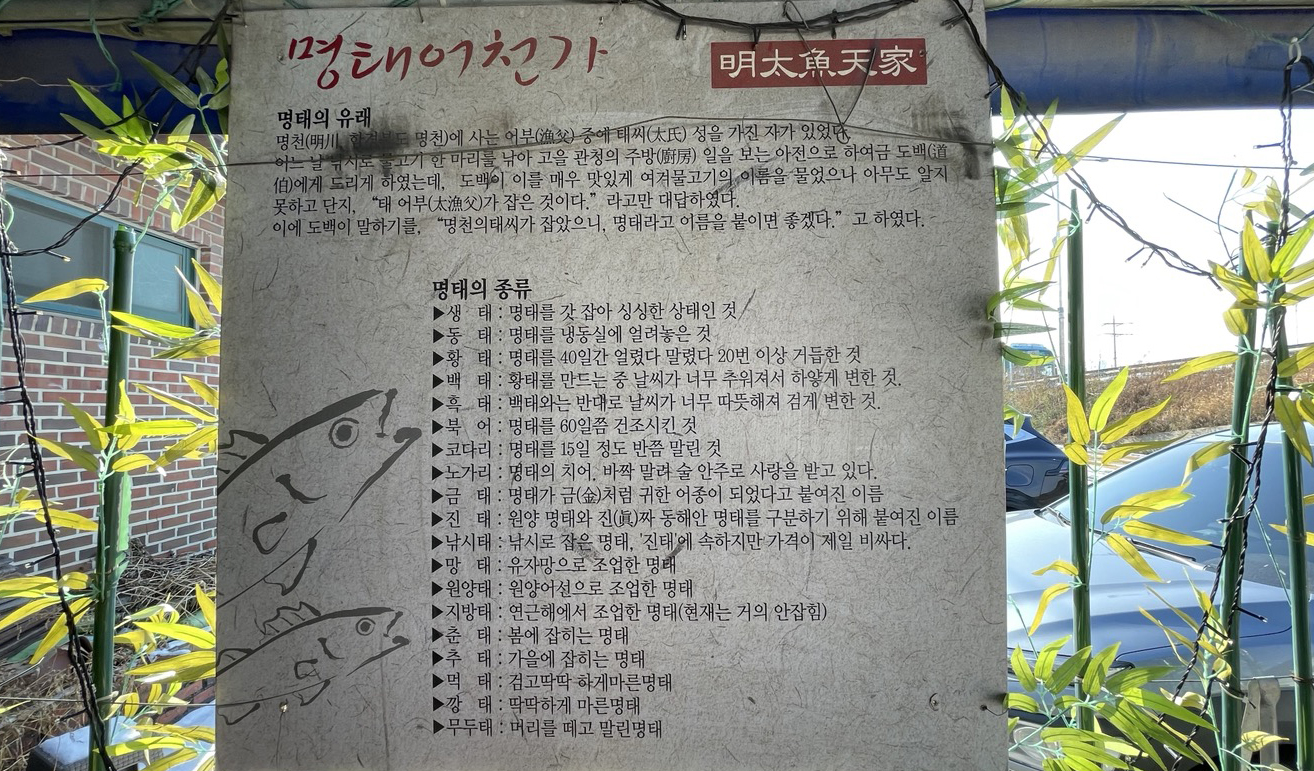 명태어천가
明太魚天家
명태의 유래
명천(明川, 함경북도 명천)에 사는 어부(漁父) 중에 태씨(太氏) 성을 가진 자가 있었다.
어느 날 낚시로 물고기 한 마리를 낚아 고을 관청의 주방(廚房) 일을 보는 아전으로 하여금 도백(道
伯)에게 드리게 하였는데, 도백이 이를 매우 맛있게 여겨물고기의 이름을 물었으나 아무도 알지
못하고 단지, “태 어부(太漁父)가 잡은 것이다.” 라고만 대답하였다.
이에 도백이 말하기를, “명천의태씨가 잡았으니, 명태라고 이름을 붙이면 좋겠다.” 고 하였다.
명태의 종류
▶생 태 : 명태를 갓 잡아 싱싱한 상태인 것
▶동 태 : 명태를 냉동실에 얼려놓은 것
▶황 태 : 명태를 40일간 얼렸다 말렸다 20번 이상 거듭한 것
▶백 태 : 황태를 만드는 중 날씨가 너무 추워져서 하얗게 변한 것.
▶흑 태 : 백태와는 반대로 날씨가 너무 따뜻해져 검게 변한 것.
▶북 어 : 명태를 60일쯤 건조시킨 것
▶코다리 : 명태를 15일 정도 반쯤 말린 것
▶노가리 : 명태의 치어. 바짝 말려 술 안주로 사랑을 받고 있다.
▶금 태 : 명태가 금(金)처럼 귀한 어종이 되었다고 붙여진 이름
▶진 태 : 원양 명태와 진(眞)짜 동해안 명태를 구분하기 위해 붙여진 이름
▶낚시태 : 낚시로 잡은 명태, '진태'에 속하지만 가격이 제일 비싸다.
▶망 태 : 유자망으로 조업한 명태
▶원양태 : 원양어선으로 조업한 명태
▶지방태 : 연근해에서 조업한 명태(현재는 거의 안잡힘)
▶춘 태 : 봄에 잡히는 명태
▶추 태 : 가을에 잡히는 명태
▶먹 태 : 검고딱딱 하게마른명태
▶깡 태 : 딱딱하게 마른명태
▶무두태 : 머리를 떼고 말린명태